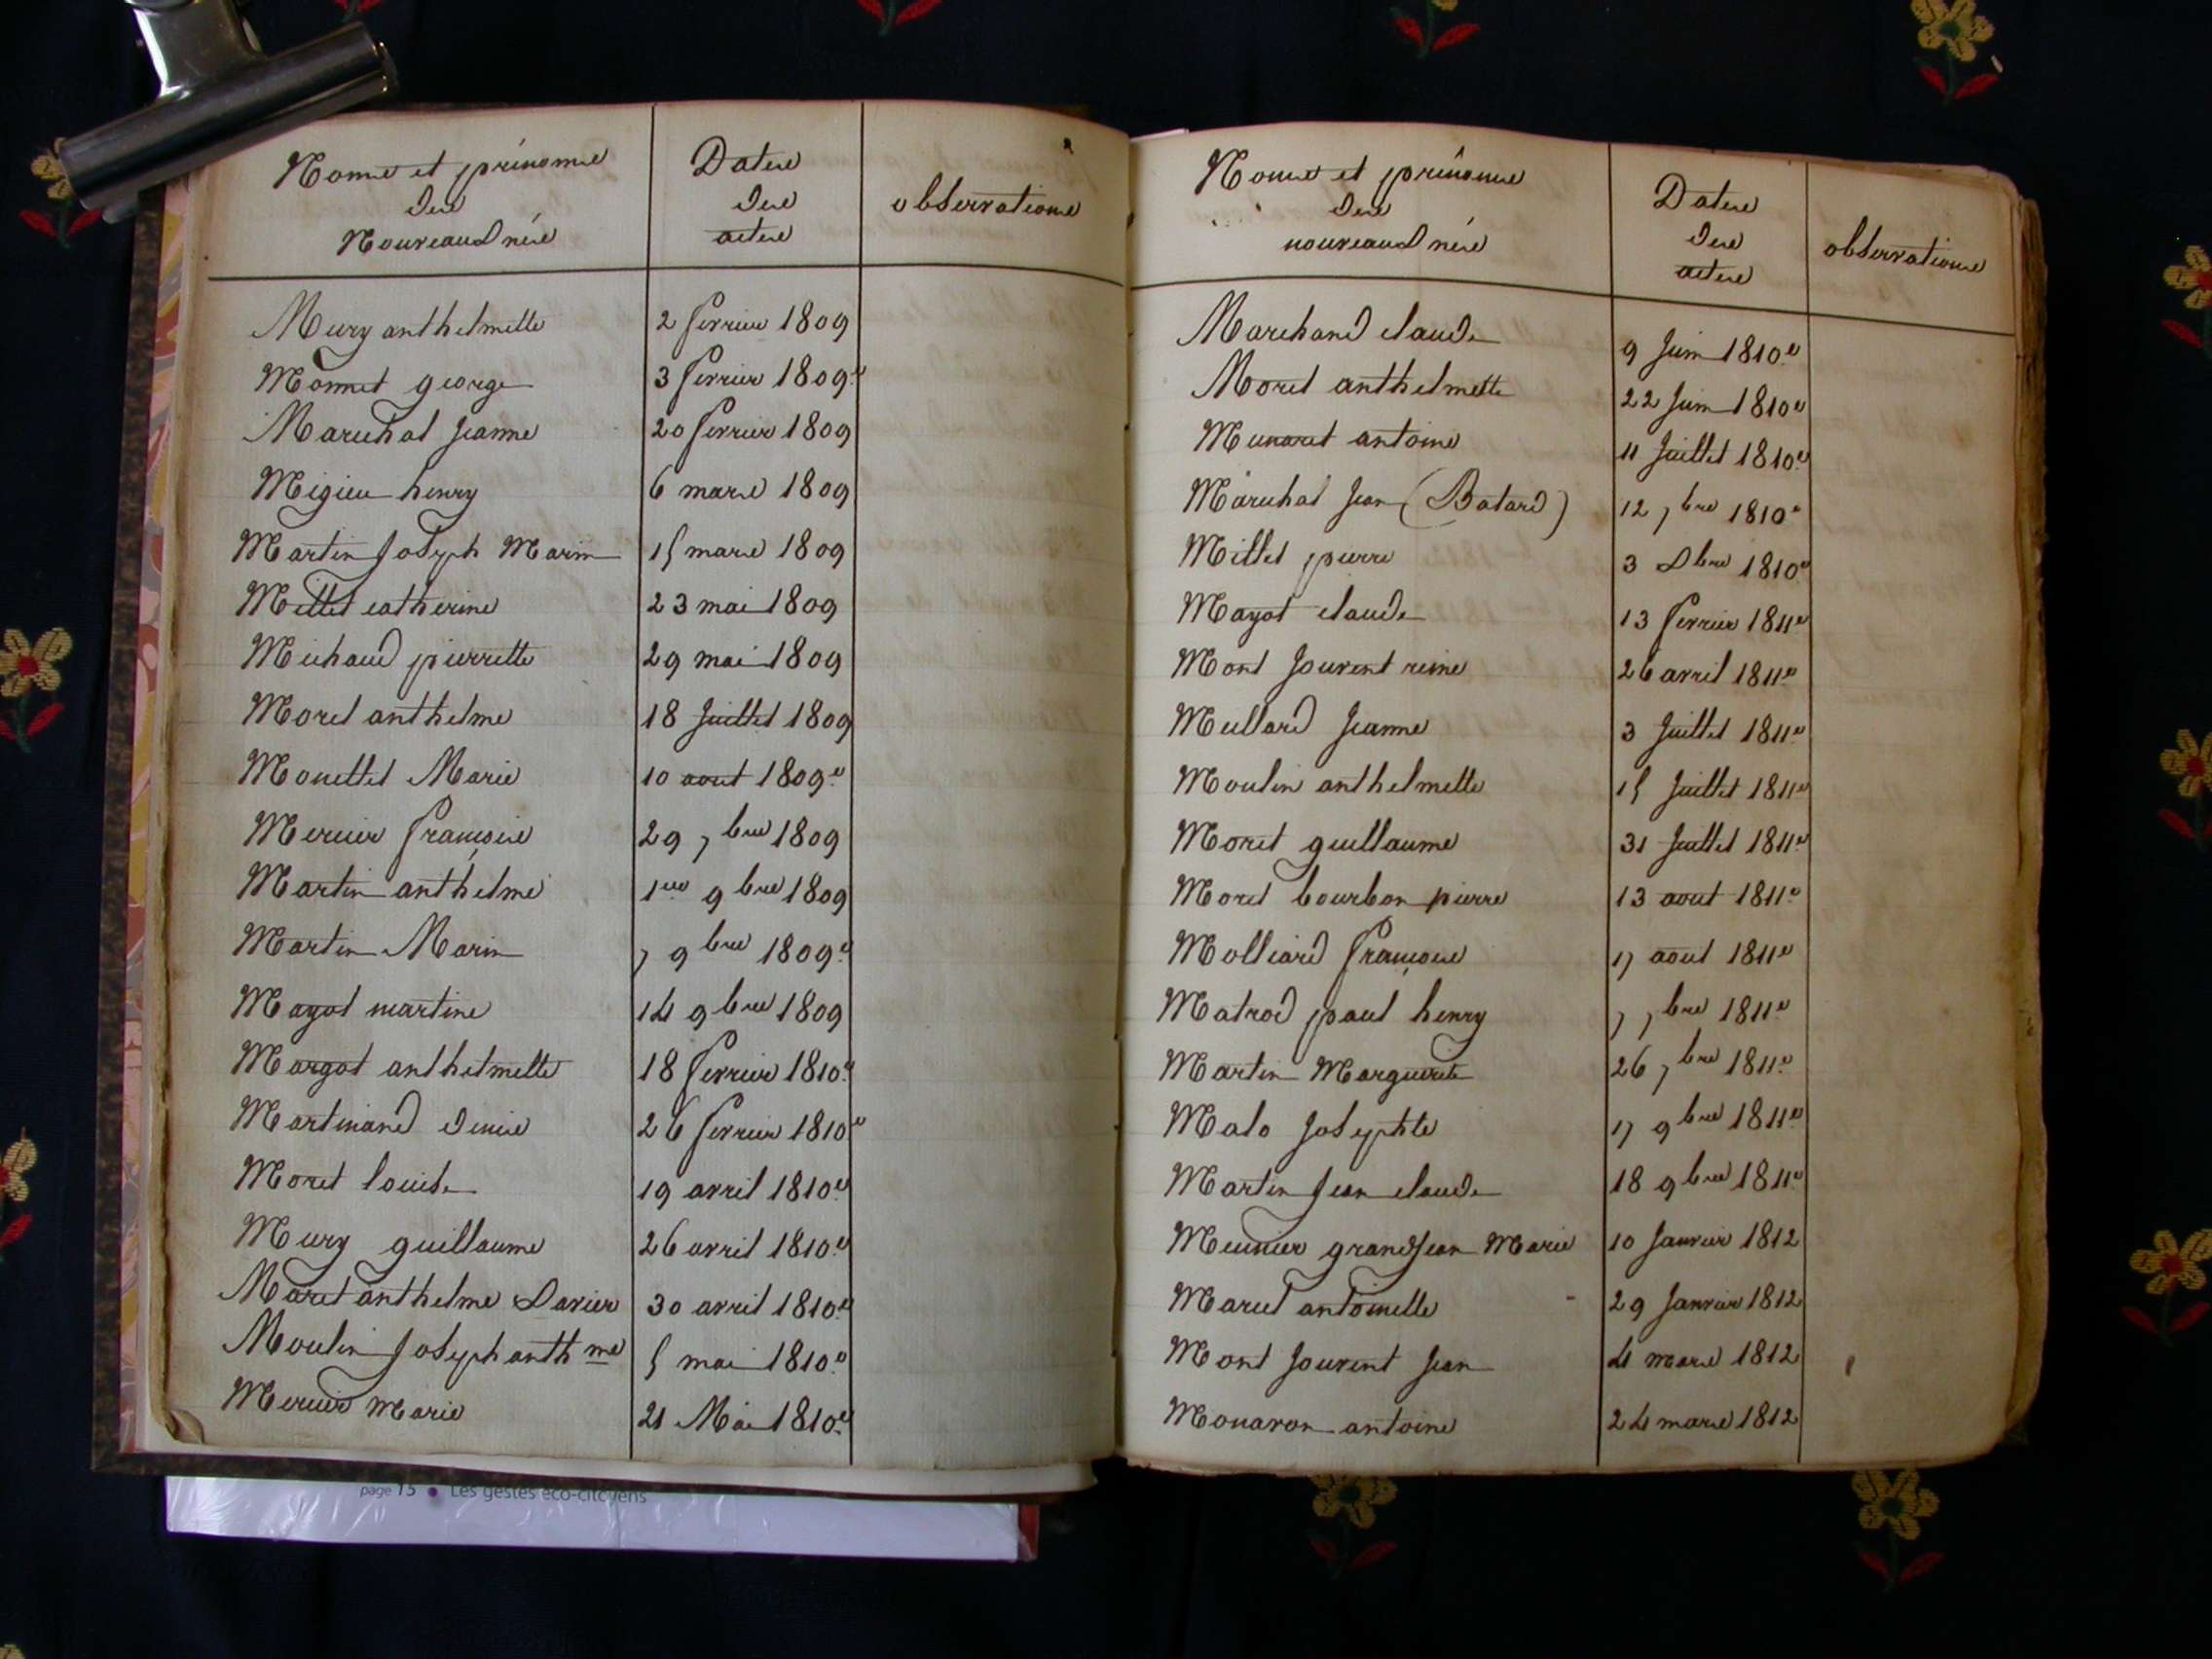 Noms et prénoms
des
Nouveaux nés
Dates
des
actes
observations
Mury anthelmette 2 fevrier 1809
Monnet george 3 fevrier 1809
Marechal Jeanne 20 fevrier 1809
Migieu henry 6 mars 1809
Martin Joseph Marin 15 mars 1809
Millet catherine 23 mai 1809
Michaud pierrette 29 mai 1809
Moret anthelme 18 Juillet 1809
Monettet Marie 10 aout 1809
Mercier françois 29 7bre 1809
Martin anthelme 1er 9bre 1809
Martin Marin 7 9bre 1809
Mayot martine 14 9bre 1809
Margot anthelmette 18 fevrier 1810
Martinand Denis 26 fevrier 1810
Moret louise 19 avril 1810
Mury guillaume 26 avril 1810
Moret anthelme Xavier 30 avril 1810
Moulin Joseph anthme 5 mai 1810
Mercier Marie 21 Mai 1810
Noms et prénoms
des
nouveaux nés
Dates
des
actes
observations
Marchand claude 9 Juin 1810
Moret anthelmette 22 Juin 1810
Munaret antoine 11 Juillet 1810
Marechal Jean (Batard) 12 7bre 1810
Millet pierre 3 Xbre 1810
Mayot claude 13 fevrier 1811
Mont Jouvent reine 26 avril 1811
Mullard Jeanne 3 Juillet 1811
Moulin anthelmette 15 Juillet 1811
Moret guillaume 31 Juillet 1811
Moret bourbon pierre 13 aout 1811
Molliard françois 17 aout 1811
Matrod paul henry 7 7bre 1811
Martin Marguerite 26 7bre 1811
Malo Josephte 17 9bre 1811
Martin Jean claude 18 9bre 1811
Meunier grandjean Marie 10 Janvier 1812
antoinette 29 Janvier 1812
Mont Jouvent Jean 4 mars 1812
Monavon antoine 24 mars 1812
page 15 • Les gestes éco-citoyens